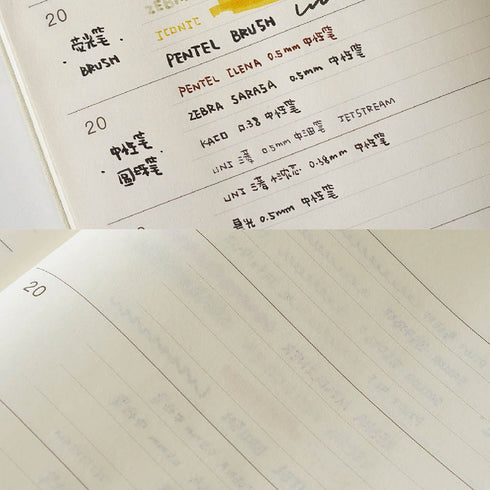 20
ZEBRA
荧光笔
BRUSH
ICONIC
PENTEL BRUSH
20
中性笔
圆珠笔
PENTEL ILENA 0.5mm 中性笔
ZEBRA SARASA 0.5mm 中性笔
KACO 0.38 中性笔
UNI 三菱 0.5mm 中油笔 JETSTREAM
UNI 三菱 0.38mm 中性笔
晨光 0.5mm 中性笔
20